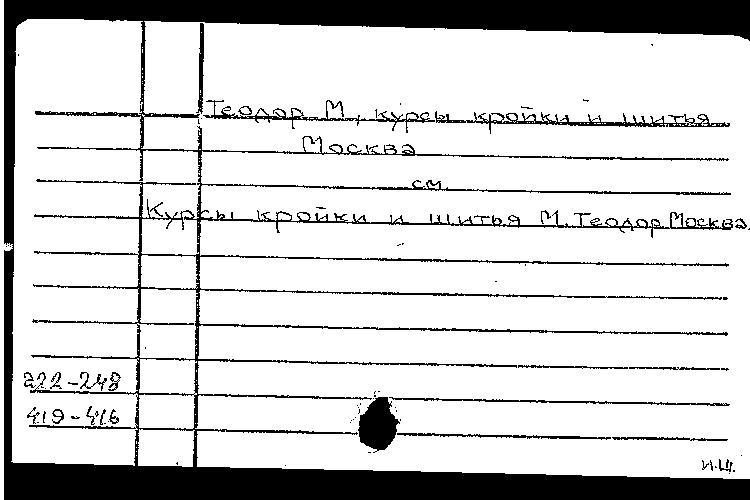 Теодор М., курсы кройки и шитья
Москва
см.
Курсы кройки и шитья М. Теодор Москва.
222-248
419-416
И.Ш.